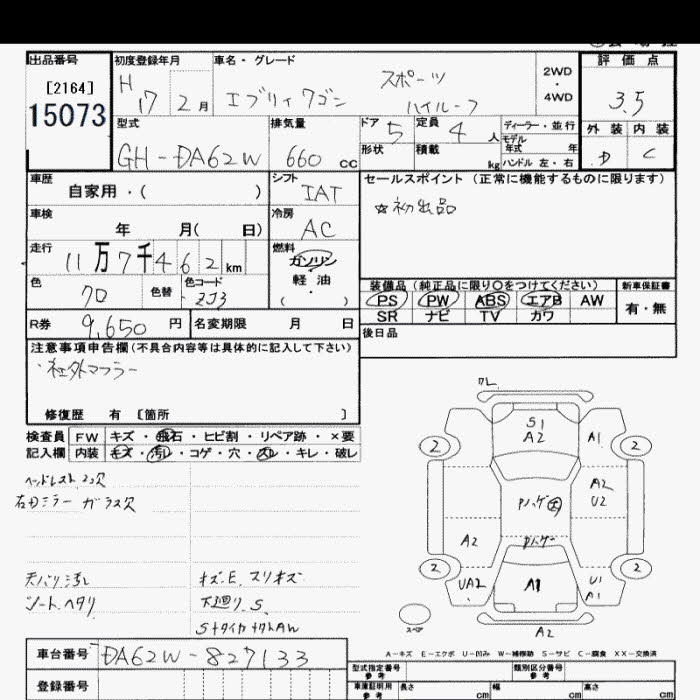 出品番号
[2164]
15073
初度登録年月
H 17 2 月
車名・グレード
エブリィワゴン
スポーツ
ハイルーフ
2WD
・
4WD
評価点
3.5
外装 内装
D C
型式
GH-DA62W
排気量
660 cc
ドア 5
定員 4 人
形状
積載 kg
ディーラー・並行
モデル
年式 年
ハンドル 左・右
車歴
自家用・( )
シフト
IAT
車検
年 月( 日)
冷房
AC
走行
11 万 7 千 4 6 2 km
燃料
ガソリン
軽油
( )
色
色替
色コード
ZJ3
セールスポイント (正常に機能するものに限ります)
☆初出品
装備品 (純正品に限り○をつけてください)
PS PW ABS エアB AW
SR ナビ TV カワ
新車保証書
有・無
R券
9,650 円
名変期限 月 日
後日品
注意事項申告欄(不具合内容等は具体的に記入して下さい)
・社外マフラー
修復歴 有 [箇所 ]
検査員
記入欄
FW キズ・飛石・ヒビ割・リペア跡・×要
内装 キズ・汚レ・コゲ・穴・スレ・キレ・破レ
右ドアミラー ガラス欠
天バリ汚レ
シートヘタリ
キズ.E.スリキズ
下廻り.S.
S1
A2
A1
2
2
A2
U2
A2
UA2
A1
U1
A1
2
2
スペア
A2
A-キズ E-エクボ U-凹み W-補修跡 S-サビ C-腐食 XX-交換済
車台番号
DA62W-827133
登録番号
型式指定番号
参考
類別区分番号
参考
車庫証明用
参考
長さ cm
幅 cm
高さ cm